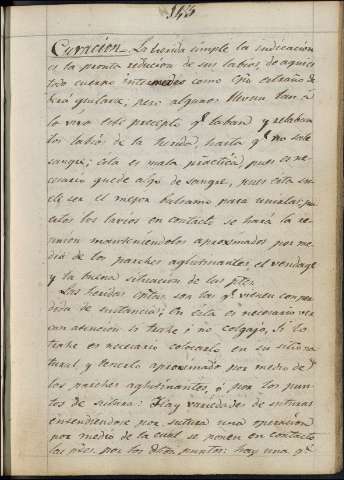 343
Curacion. La herida simple la indicacion
es la pronta reducion de sus labios, de aqui es
todo cuerpo intermedio como Cpo estraño de
berá quitarse; pero algunos llevan tan á
lo vivo este precepto q.e laban y relaban
los labios de la herida, hasta q.e no sale
sangre; esta es mala practica, pues es ne-
cesario quede algo de sangre, pues esta su-
ele ser el mejor balsamo para unirlas; pu
estos los lavios en contacto se hará la re-
union manteniendolos aprosimados por me-
dio de los parches aglutinantes, el vendage
y la buena situacion de las ptes.
Las heridas contusas son las q.e vienen con per-
dida de sustancia; En esta es necesario ver
con atencion si trahe ó no colgajo, Si lo
trahe es necesario colocarlo en su sitio na
tural, y tenerlo aprosimado por medio de
los parches aglutinantes, ó por los pun-
tos de sutura: Hay variedades de suturas
entendiendose por sutura una operacion
por medio de la cual se ponen en contacto
las ptes. por los dhos puntos: hay una q.e